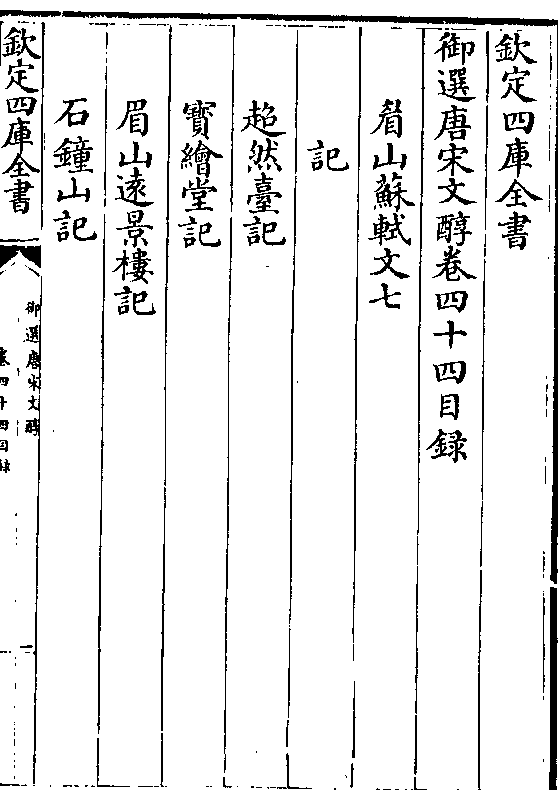 欽定四庫全書
御選唐宋文醇卷四十四目録
眉山蘇軾文七
記
超然臺記
寳繪堂記
眉山逺景樓記
石鐘山記
欽定四庫全書
御選唐宋文醇
卷四十四目録
一